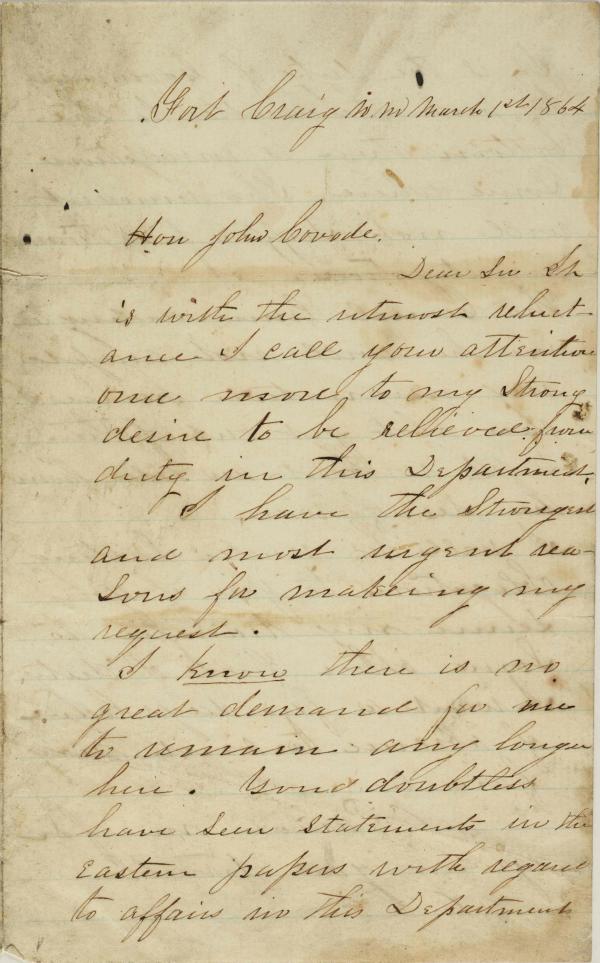 Fort Craig N. M March 1st 1864
Hon John Covode.
Dear Sir It
is with the utmost reluct-
ance I call your attention
once more to my Strong
desire to be relieved from
duty in this Department.
I have the Strongest
and most urgent rea-
sons for makeing my
request.
I know there is no
great demand for me
to remain any longer
here. You doubtless
have seen statements in the
Eastern papers with regard
to affairs in this Department